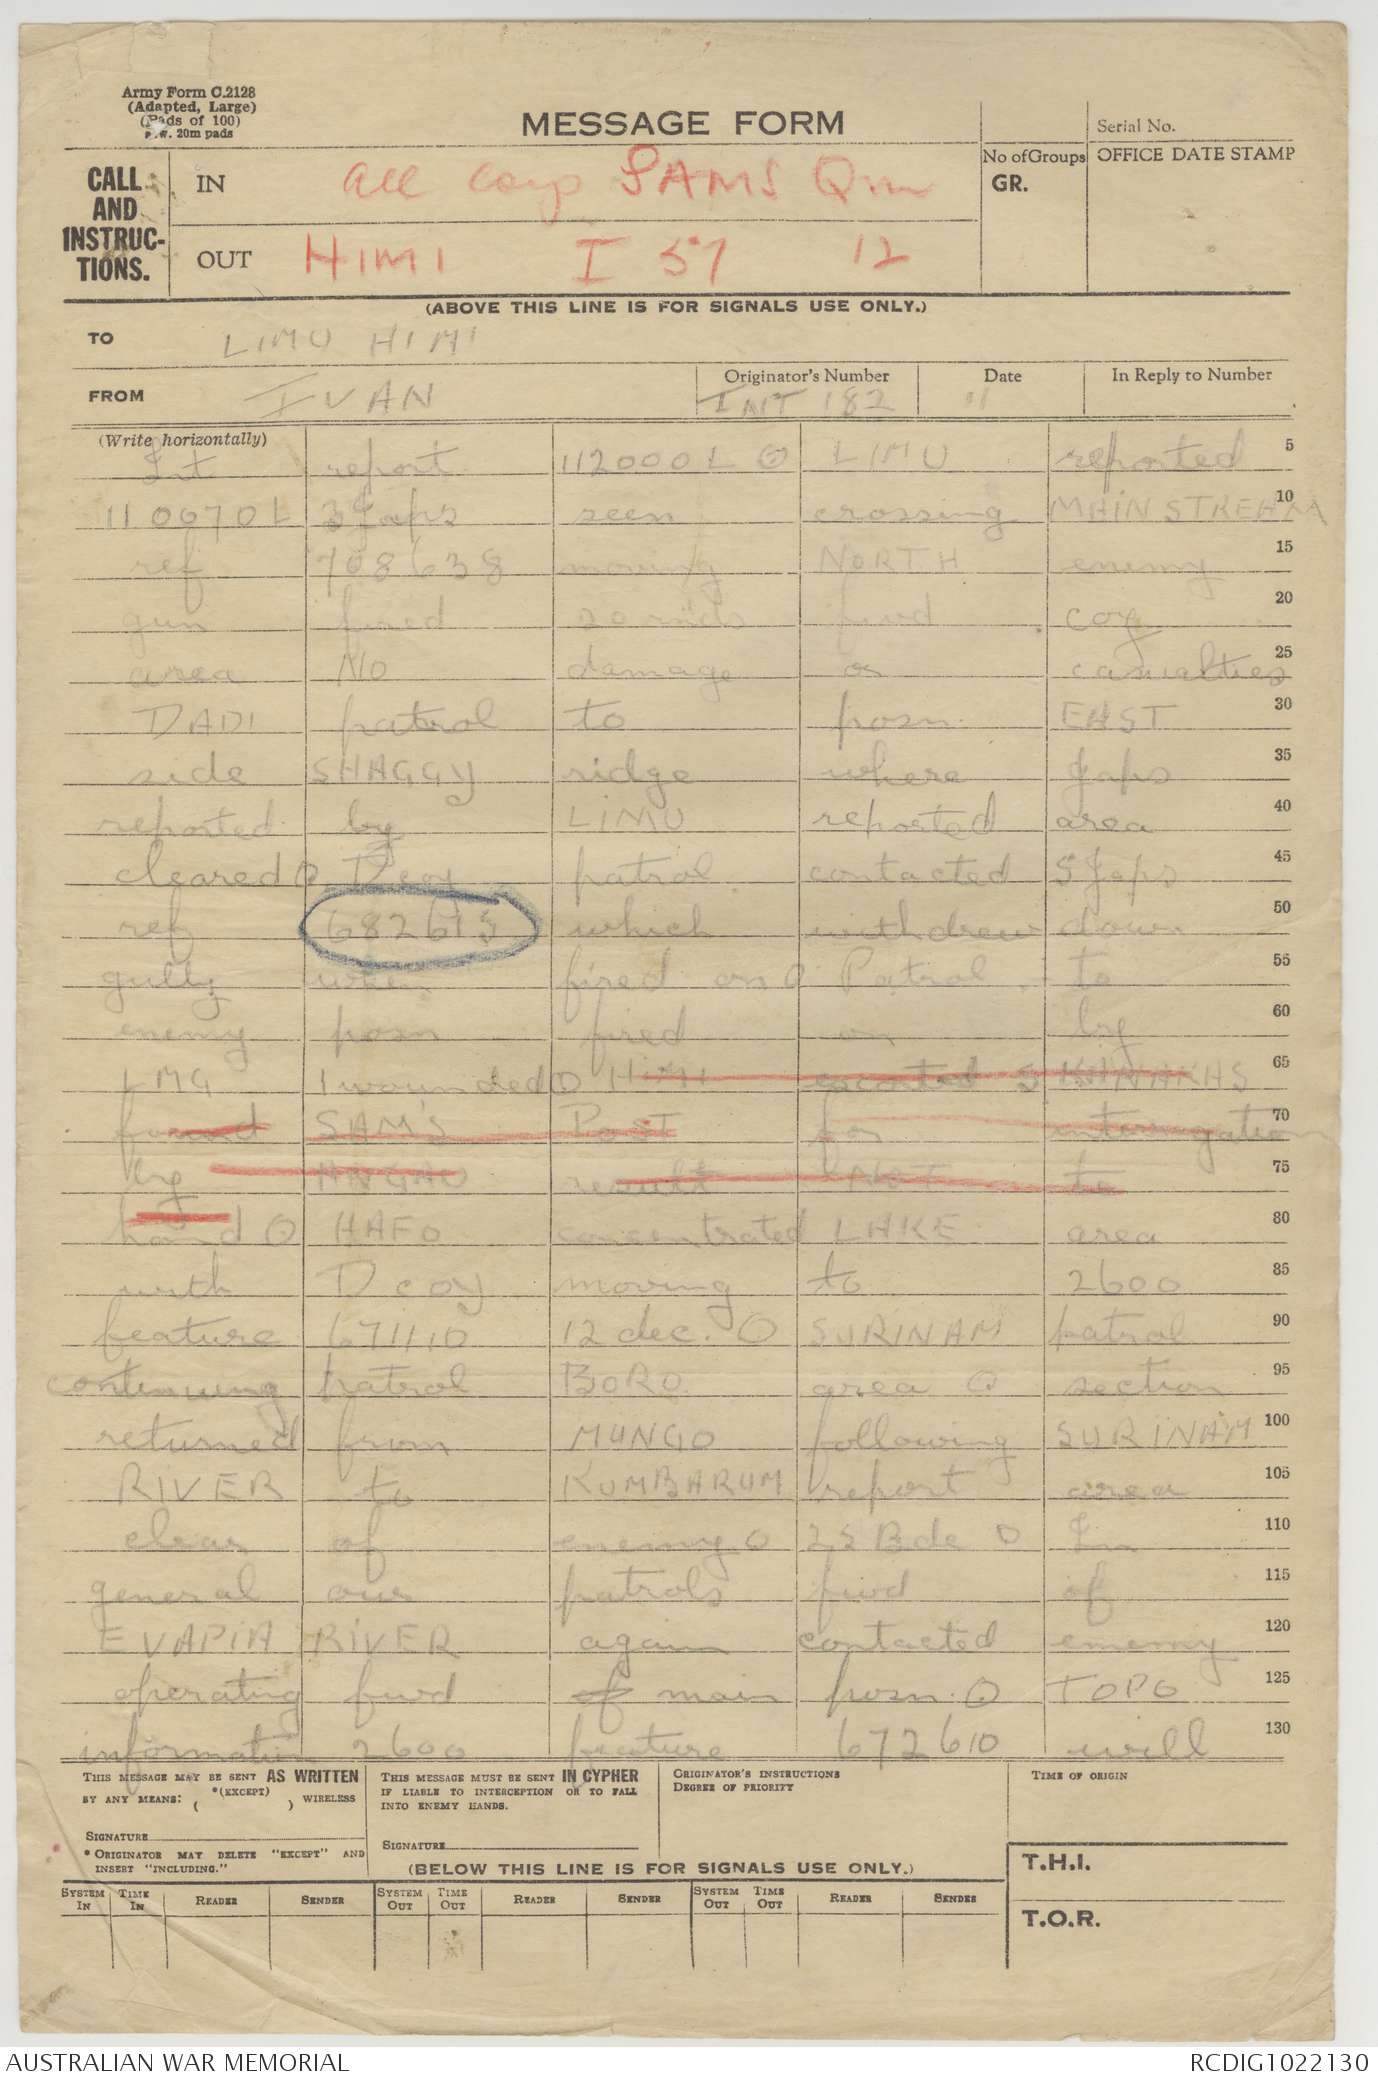 Army Form C.2128
(Adapted, Large)
(Pads of 100)
20m pads
MESSAGE FORM
Serial No.
CALL
AND
INSTRUC-
TIONS.
IN all coys SAMS Qm
OUT HIMI I 57 12
No of Groups
GR.
OFFICE DATE STAMP
(ABOVE THIS LINE IS FOR SIGNALS USE ONLY.)
TO LIMU HIMI
FROM IVAN
Originator's Number INT 182
Date 11
In Reply to Number
(Write horizontally)
Int report 112000L O LIMU reported 5
110070L 3 Japs seen crossing MAIN STREAM 10
ref 708638 moving NORTH enemy 15
gun fired 20 rnds fwd coy 20
area No damage or casualties 25
DADI patrol to posn EAST 30
side SHAGGY ridge where Japs 35
reported by LIMU reported area 40
cleared O D coy patrol contacted 5 Japs 45
ref 682615 which withdrew down 50
gully when fired on O Patrol to 55
enemy posn fired on by 60
LMG 1 wounded O HIMI escorted 5 KANAKAS 65
SAM'S POST for interrogation 70
by ANGAU result to 75
hand O HAFO concentrated LAKE area 80
with D coy moving to 2600 85
feature 671110 12 dec. O SURINAM patrol 90
continuing patrol BORO area O section 95
returned from MUNGO following SURINAM 100
RIVER to KUMBARUM report area 105
clear of enemy O 25 Bde O In 110
general our patrols fwd of 115
EVAPIA RIVER again contacted enemy 120
operating fwd of main posn O TOPO 125
information 2600 feature 672610 will 130
THIS MESSAGE MAY BE SENT AS WRITTEN
BY ANY MEANS: ( *(EXCEPT) ) WIRELESS
SIGNATURE
* ORIGINATOR MAY DELETE "EXCEPT" AND
INSERT "INCLUDING."
THIS MESSAGE MUST BE SENT IN CYPHER
IF LIABLE TO INTERCEPTION OR TO FALL
INTO ENEMY HANDS.
SIGNATURE
ORIGINATOR'S INSTRUCTIONS
DEGREE OF PRIORITY
TIME OF ORIGIN
(BELOW THIS LINE IS FOR SIGNALS USE ONLY.)
T.H.I.
T.O.R.
SYSTEM IN TIME IN READER SENDER SYSTEM OUT TIME OUT READER SENDER SYSTEM OUT TIME OUT READER SENDER
AUSTRALIAN WAR MEMORIAL
RCDIG1022130